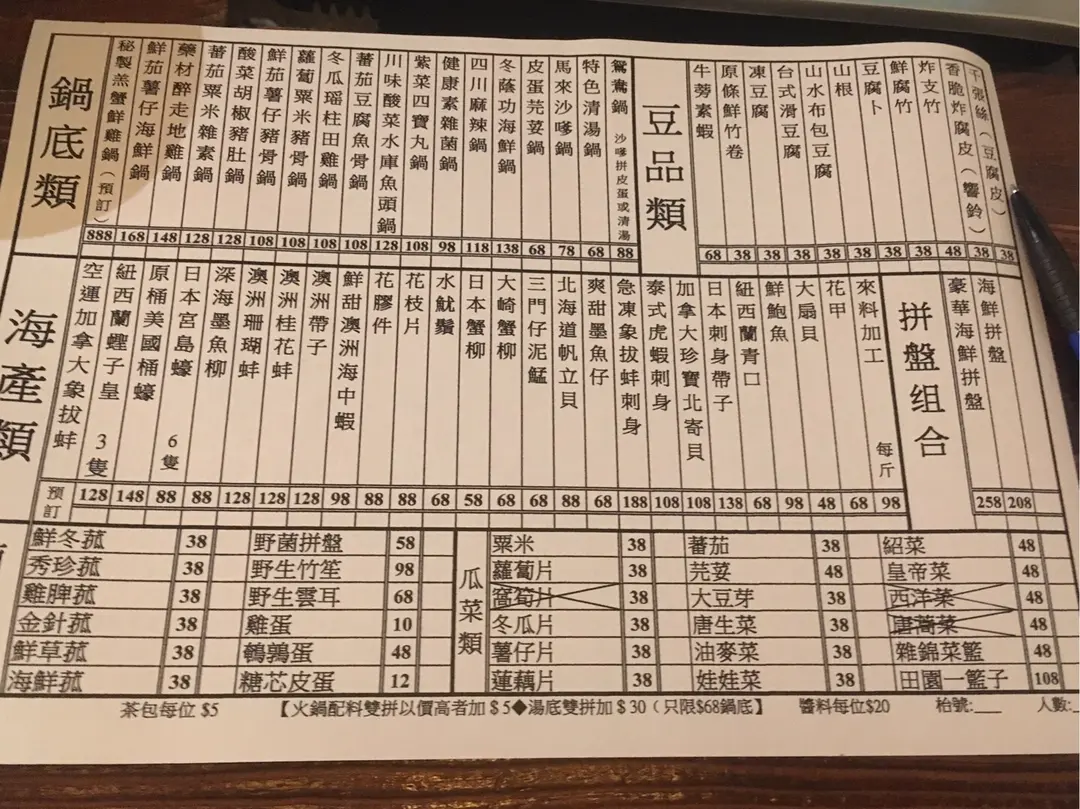 鍋底類
秘製羔蟹鮮雞鍋（預訂） 888
鮮茄薯仔海鮮鍋 168
藥材醉走地雞鍋 148
蕃茄粟米雜素鍋 128
酸菜胡椒豬肚鍋 128
鮮茄薯仔豬骨鍋 108
蘿蔔粟米豬骨鍋 108
冬瓜瑤柱田雞鍋 108
蕃茄豆腐魚骨鍋 108
川味酸菜水庫魚頭鍋 128
紫菜四寶丸鍋 108
健康素雜菌鍋 98
四川麻辣鍋 118
冬蔭功海鮮鍋 138
皮蛋芫荽鍋 68
馬來沙嗲鍋 78
特色清湯鍋 68
鴛鴦鍋 沙嗲拼皮蛋或清湯 88
豆品類
牛蒡素蝦 68
原條鮮竹卷 38
凍豆腐 38
台式滑豆腐 38
山水布包豆腐 38
山根 38
豆腐卜 38
鮮腐竹 38
炸支竹 48
香脆炸腐皮（響鈴） 38
絲（豆腐皮） 38
海產類
空運加拿大象拔蚌 預訂
紐西蘭蟶子皇 3隻 128
原桶美國桶蠔 148
日本宮島蠔 6隻 88
深海墨魚柳 88
澳洲珊瑚蚌 128
澳洲桂花蚌 128
澳洲帶子 128
鮮甜澳洲海中蝦 98
花膠件 88
花枝片 88
水魷鬚 68
日本蟹柳 58
大崎蟹柳 68
三門仔泥鯭 68
北海道帆立貝 88
爽甜墨魚仔 68
急凍象拔蚌刺身 188
泰式虎蝦刺身 108
加拿大珍寶北寄貝 108
日本刺身帶子 138
紐西蘭青口 68
鮮鮑魚 98
大扇貝 48
花甲 68
來料加工 每斤 98
拼盤组合
豪華海鮮拼盤 258
海鮮拼盤 208
鮮冬菰 38
秀珍菰 38
雞脾菰 38
金針菰 38
鮮草菰 38
海鮮菰 38
野菌拼盤 58
野生竹笙 98
野生雲耳 68
雞蛋 10
鵪鶉蛋 48
糖芯皮蛋 12
瓜菜類
粟米 38
蘿蔔片 38
萵筍片 38
冬瓜片 38
薯仔片 38
蓮藕片 38
蕃茄 38
芫荽 48
大豆芽 38
唐生菜 38
油麥菜 38
娃娃菜 38
紹菜 48
皇帝菜 48
西洋菜 48
唐蒿菜 48
雜錦菜籃 48
田園一籃子 108
茶包每位 $5 【火鍋配料雙拼以價高者加＄5◆湯底雙拼加＄30（只限$68鍋底】 醬料每位$20 枱號:___ 人數:_